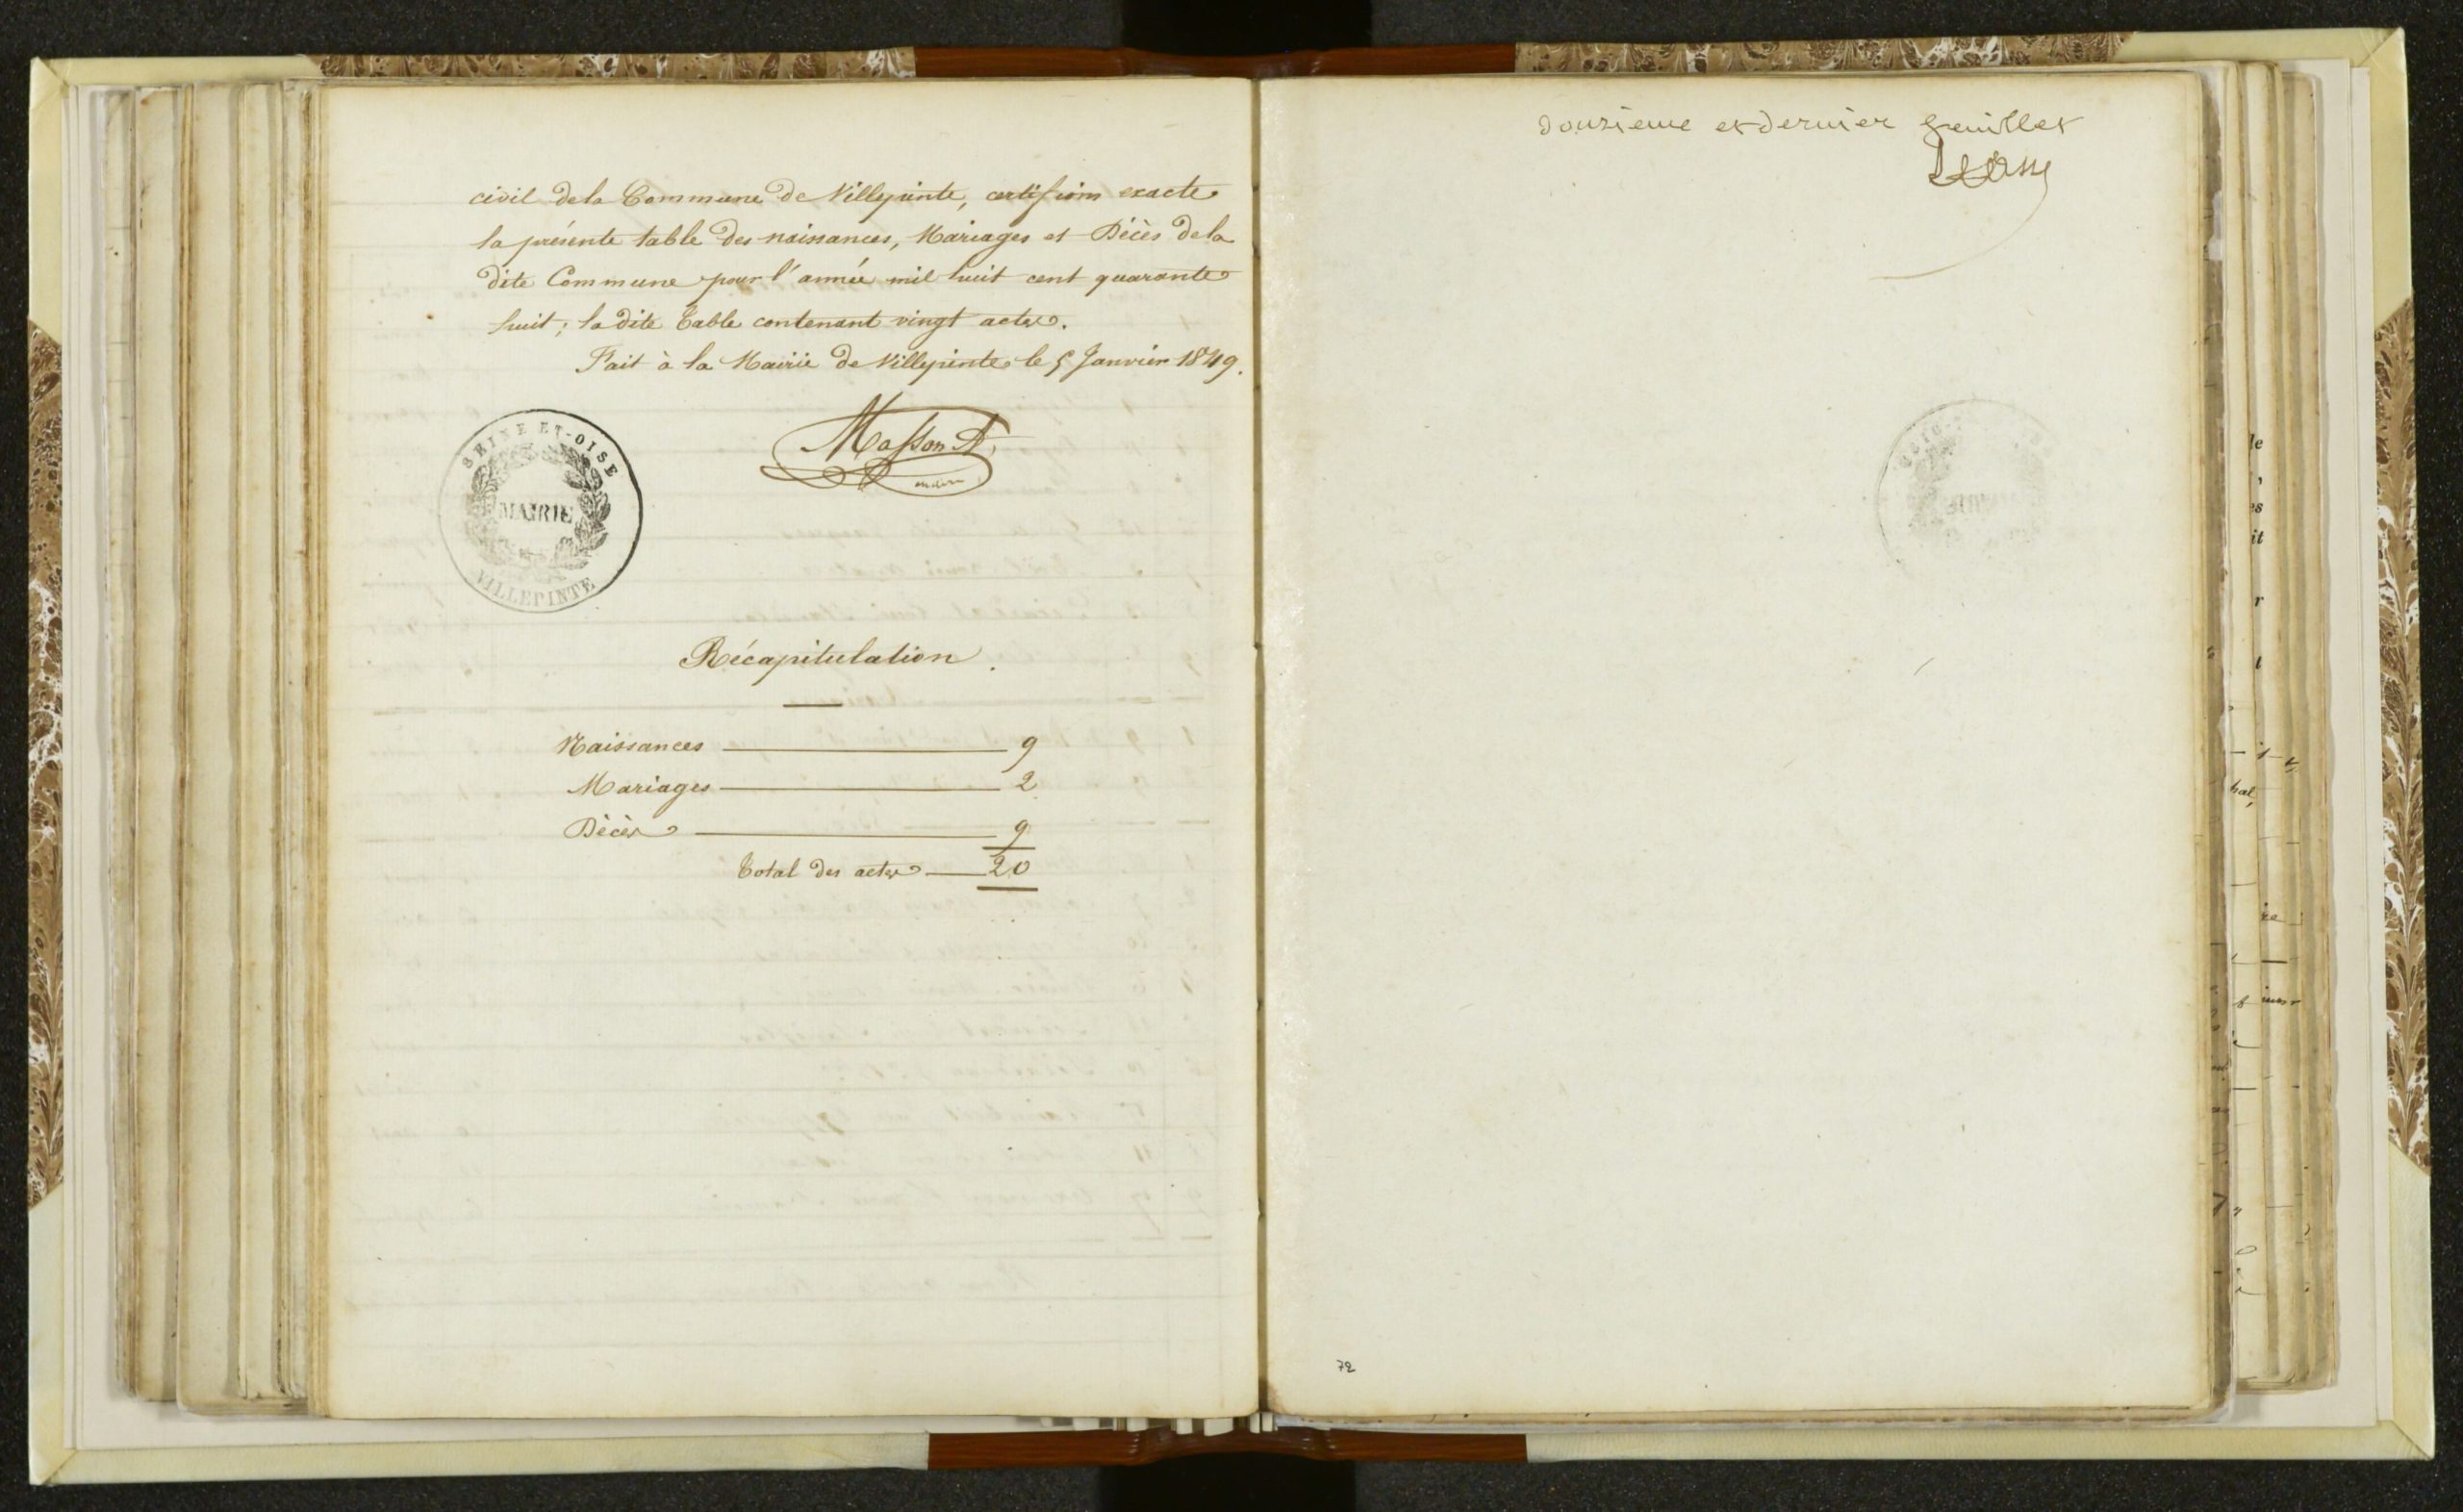 civil dela Commune de Villepinte, certifions exacte
la présente table des naissances, Mariages et Décès dela
dite Commune pour l'année mil huit cent quarante
huit; la dite Table contenant vingt actes.
Fait à la Mairie de Villepinte le 5 Janvier 1849.
Masson A.
SEINE ET-OISE
MAIRIE
VILLEPINTE
Récapitulation.
Naissances 9
Mariages 2
Décès 9
Total des actes 20
douzieme et dernier feuillet
72